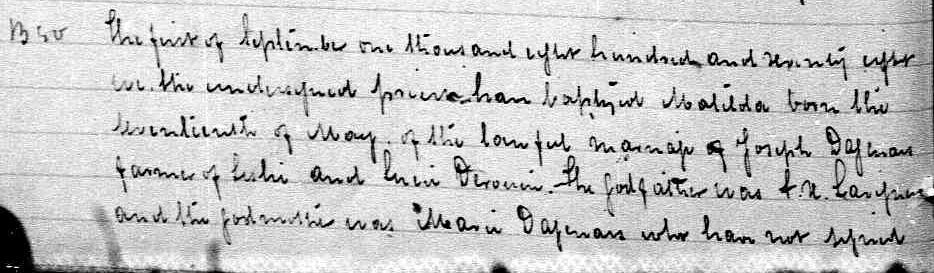 B50 The first of September one thousand eight hundred and seventy eight
we the undersigned priest have baptized Matilda born the
seventienth of May of the lawful marriage of Joseph Dagenais
farmer of Leslie and Lucie Derouin. The godfather was F. X.
and the godmother was Marie Dagenais who have not signed